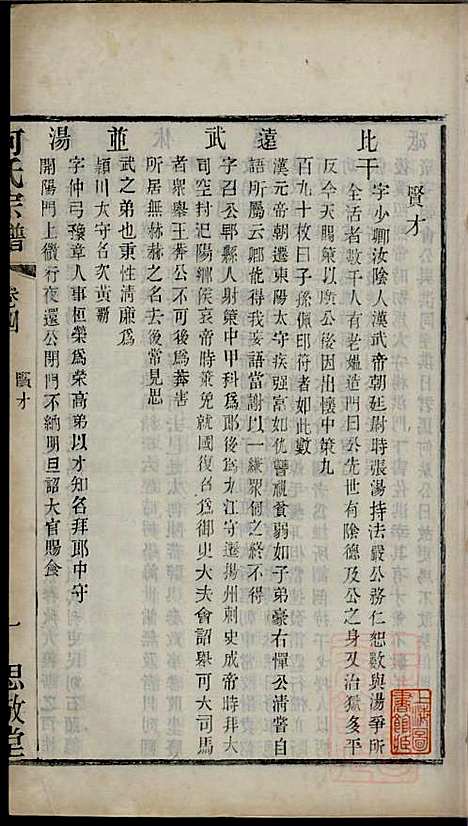 賢才
比干 字少卿汝陰人漢武帝朝廷尉時張湯持法嚴公務仁恕數與湯爭所
全活者數千人有老嫗造門曰公先世有陰德及公之身又治獄多平
反今天賜策以後因出懷中策九
百九十枚曰子孫佩印符者如此數
遠 漢元帝朝遷東陽太守疾强富如仇讐視貧弱如子弟豪右憚公清嘗自
語所屬云卿能我妄語當謝以一縑眾伺之終不得
武 字君公郫縣人射策中甲科爲郎後爲九江守遷揚州刺史成帝時拜大
司空封汜陽鄉侯哀帝時策免就國復召爲御史大夫會詔舉可大司馬
者眾舉王莽公不可故爲莽害
所居無赫赫之名去後常見思
並 武之弟也秉性清廉爲
潁川太守名次黃霸
湯 字仲弓豫章人事桓榮爲榮高弟以才知名拜郎中守
開陽門上微行夜還公閉門不納明旦詔大官賜食
何氏宗譜
卷四
賢才
一
思敬堂
上海圖書館藏